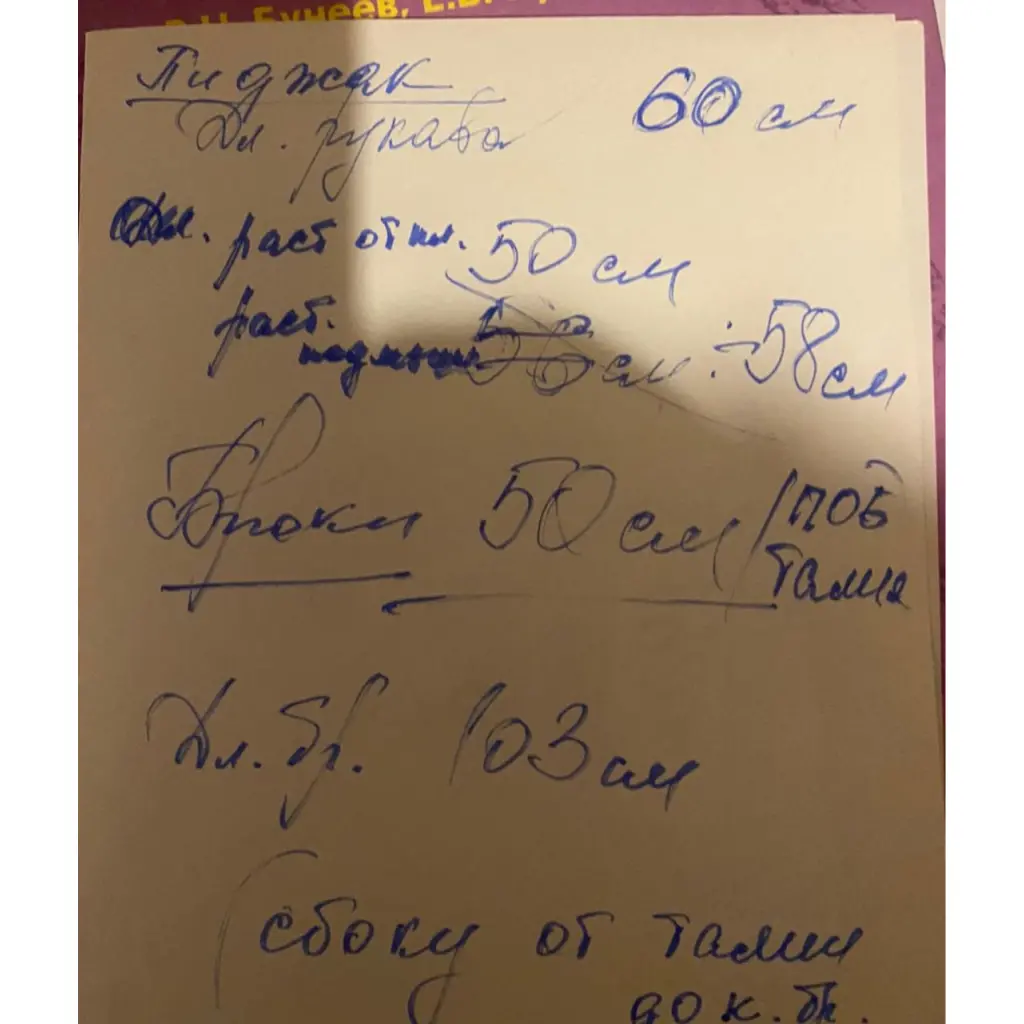 Р.Н. Бунеев, Е.В.
Пиджак
Дл. рукава 60 см
Дл. раст от пл. 50 см
раст. подмыш. 56 см ÷ 58 см
Брюки 50 см / поб
талия
Дл. бр. 103 см
(сбоку от талии
до к. бр.